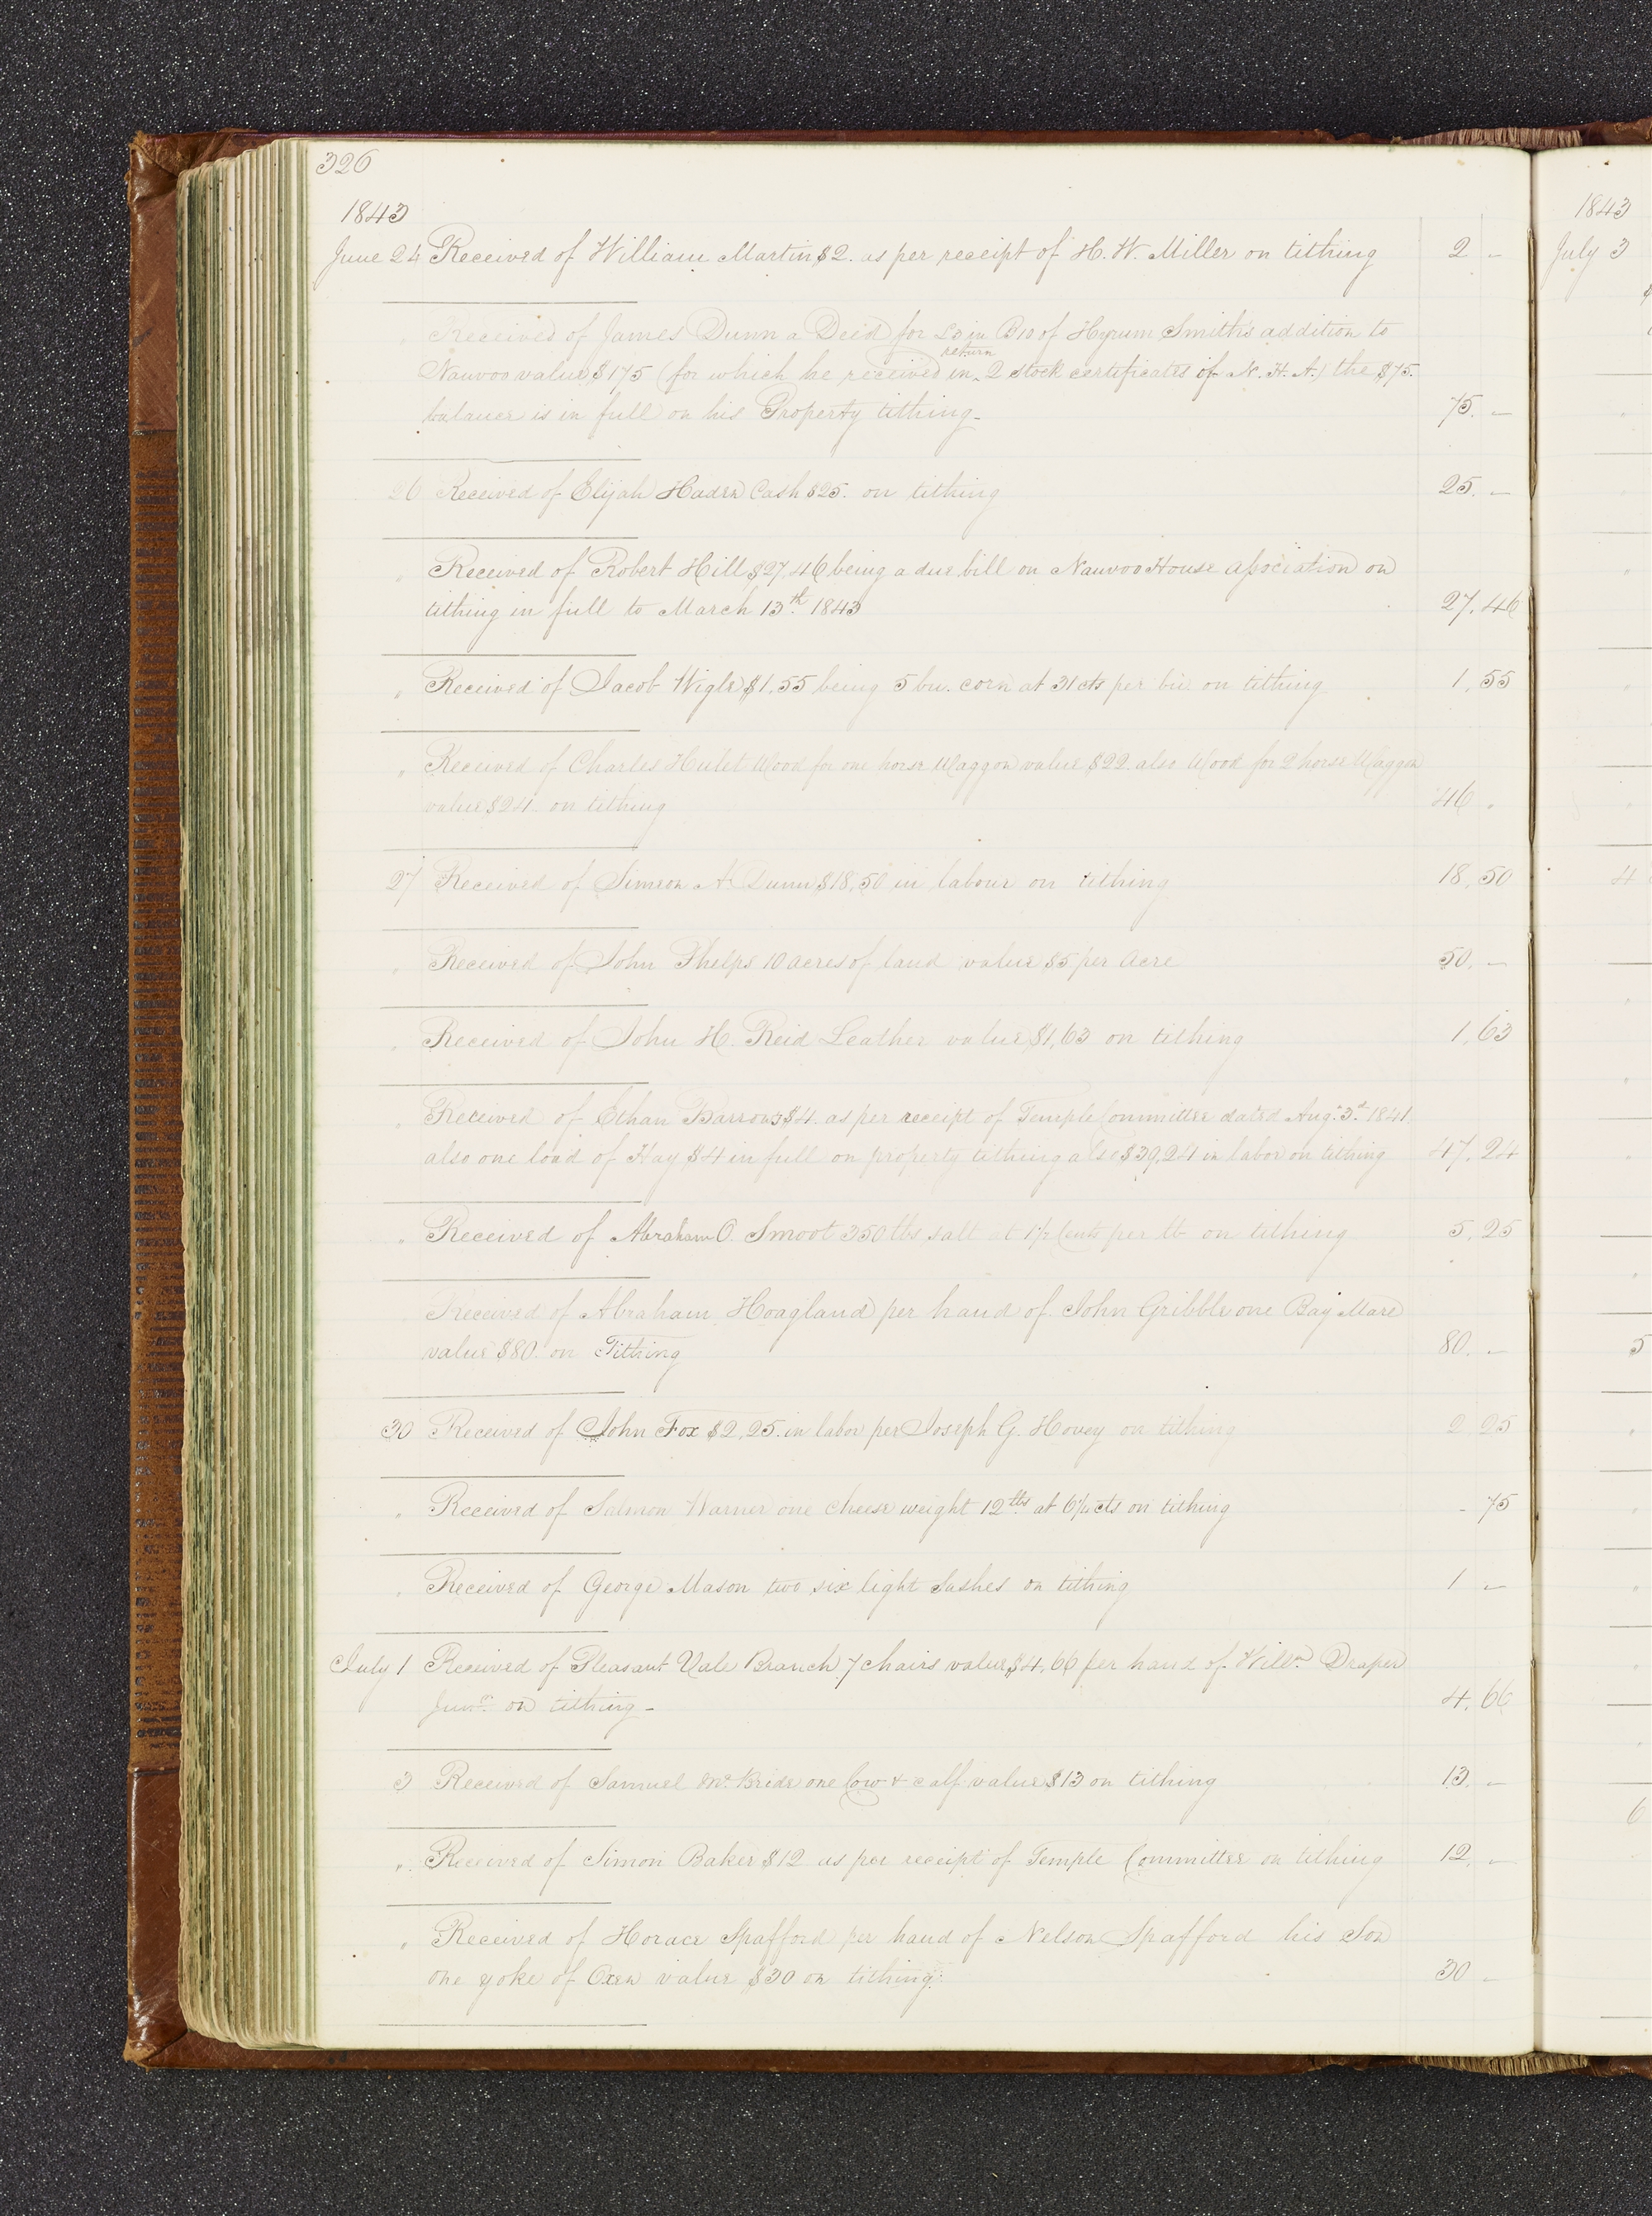 326
1843
June 24 Received of William Martin $2. as per receipt of H. W. Miller on tithing 2 –
" Received of James Dunn a Deed for L3 in B10 of Hyrum Smith's addition to
return
Nauvoo value $175 (for which he received in ^ 2 stock certificates of N. H. A.) the $75.
balance is in full on his Property tithing – 75. –
26 Received of Elijah Haden Cash $25. on tithing 25. –
" Received of Robert Hill $27,46 being a due bill on Nauvoo House Association on
tithing in full to March 13th 1843 27.46
" Received of Jacob Wigle $1,55 being 5 bu. corn at 31 cts per bu on tithing 1,55
" Received of Charles Hulet Wood for one horse Waggon value $22. also Wood for 2 horse Waggon
value $24. on tithing 46 "
27 Received of Simeon A. Dunn $18,50 in labour on tithing 18,50
" Received of John Phelps 10 acres of land value $5 per Acre 50. –
" Received of John H. Reid Leather value $1,63 on tithing 1,63
" Received of Ethan Barrows $4. as per receipt of Temple Committee dated Aug. 3d. 1841.
also one load of Hay $4 in full on property tithing also $39,24 in labor on tithing 47,24
" Received of Abraham O. Smoot 350 lbs salt at 1½ Cents per lb on tithing 5,25
Received of Abraham Hoagland per hand of John Gribble one Bay Mare
value $80. on Tithing 80. –
30 Received of John Fox $2,25. in labor per Joseph G. Hovey on tithing 2 25
" Received of Salmon Warner one cheese weight 12 lbs. at 6¼ cts on tithing - 75
" Received of George Mason two six light Sashes on tithing 1 –
July 1 Received of Pleasant Vale Branch 7 chairs value $4,66 per hand of Willm. Draper
Junr. on tithing – 4,66
3 Received of Samuel Mc.Bride one Cow & calf value $13 on tithing 13. –
" Received of Simon Baker $12 as per receipt of Temple Committee on tithing 12. –
" Received of Horace Spafford per hand of Nelson Spafford his Son
one yoke of Oxen value $30 on tithing. 30 –
1843
July 3
4
5
6